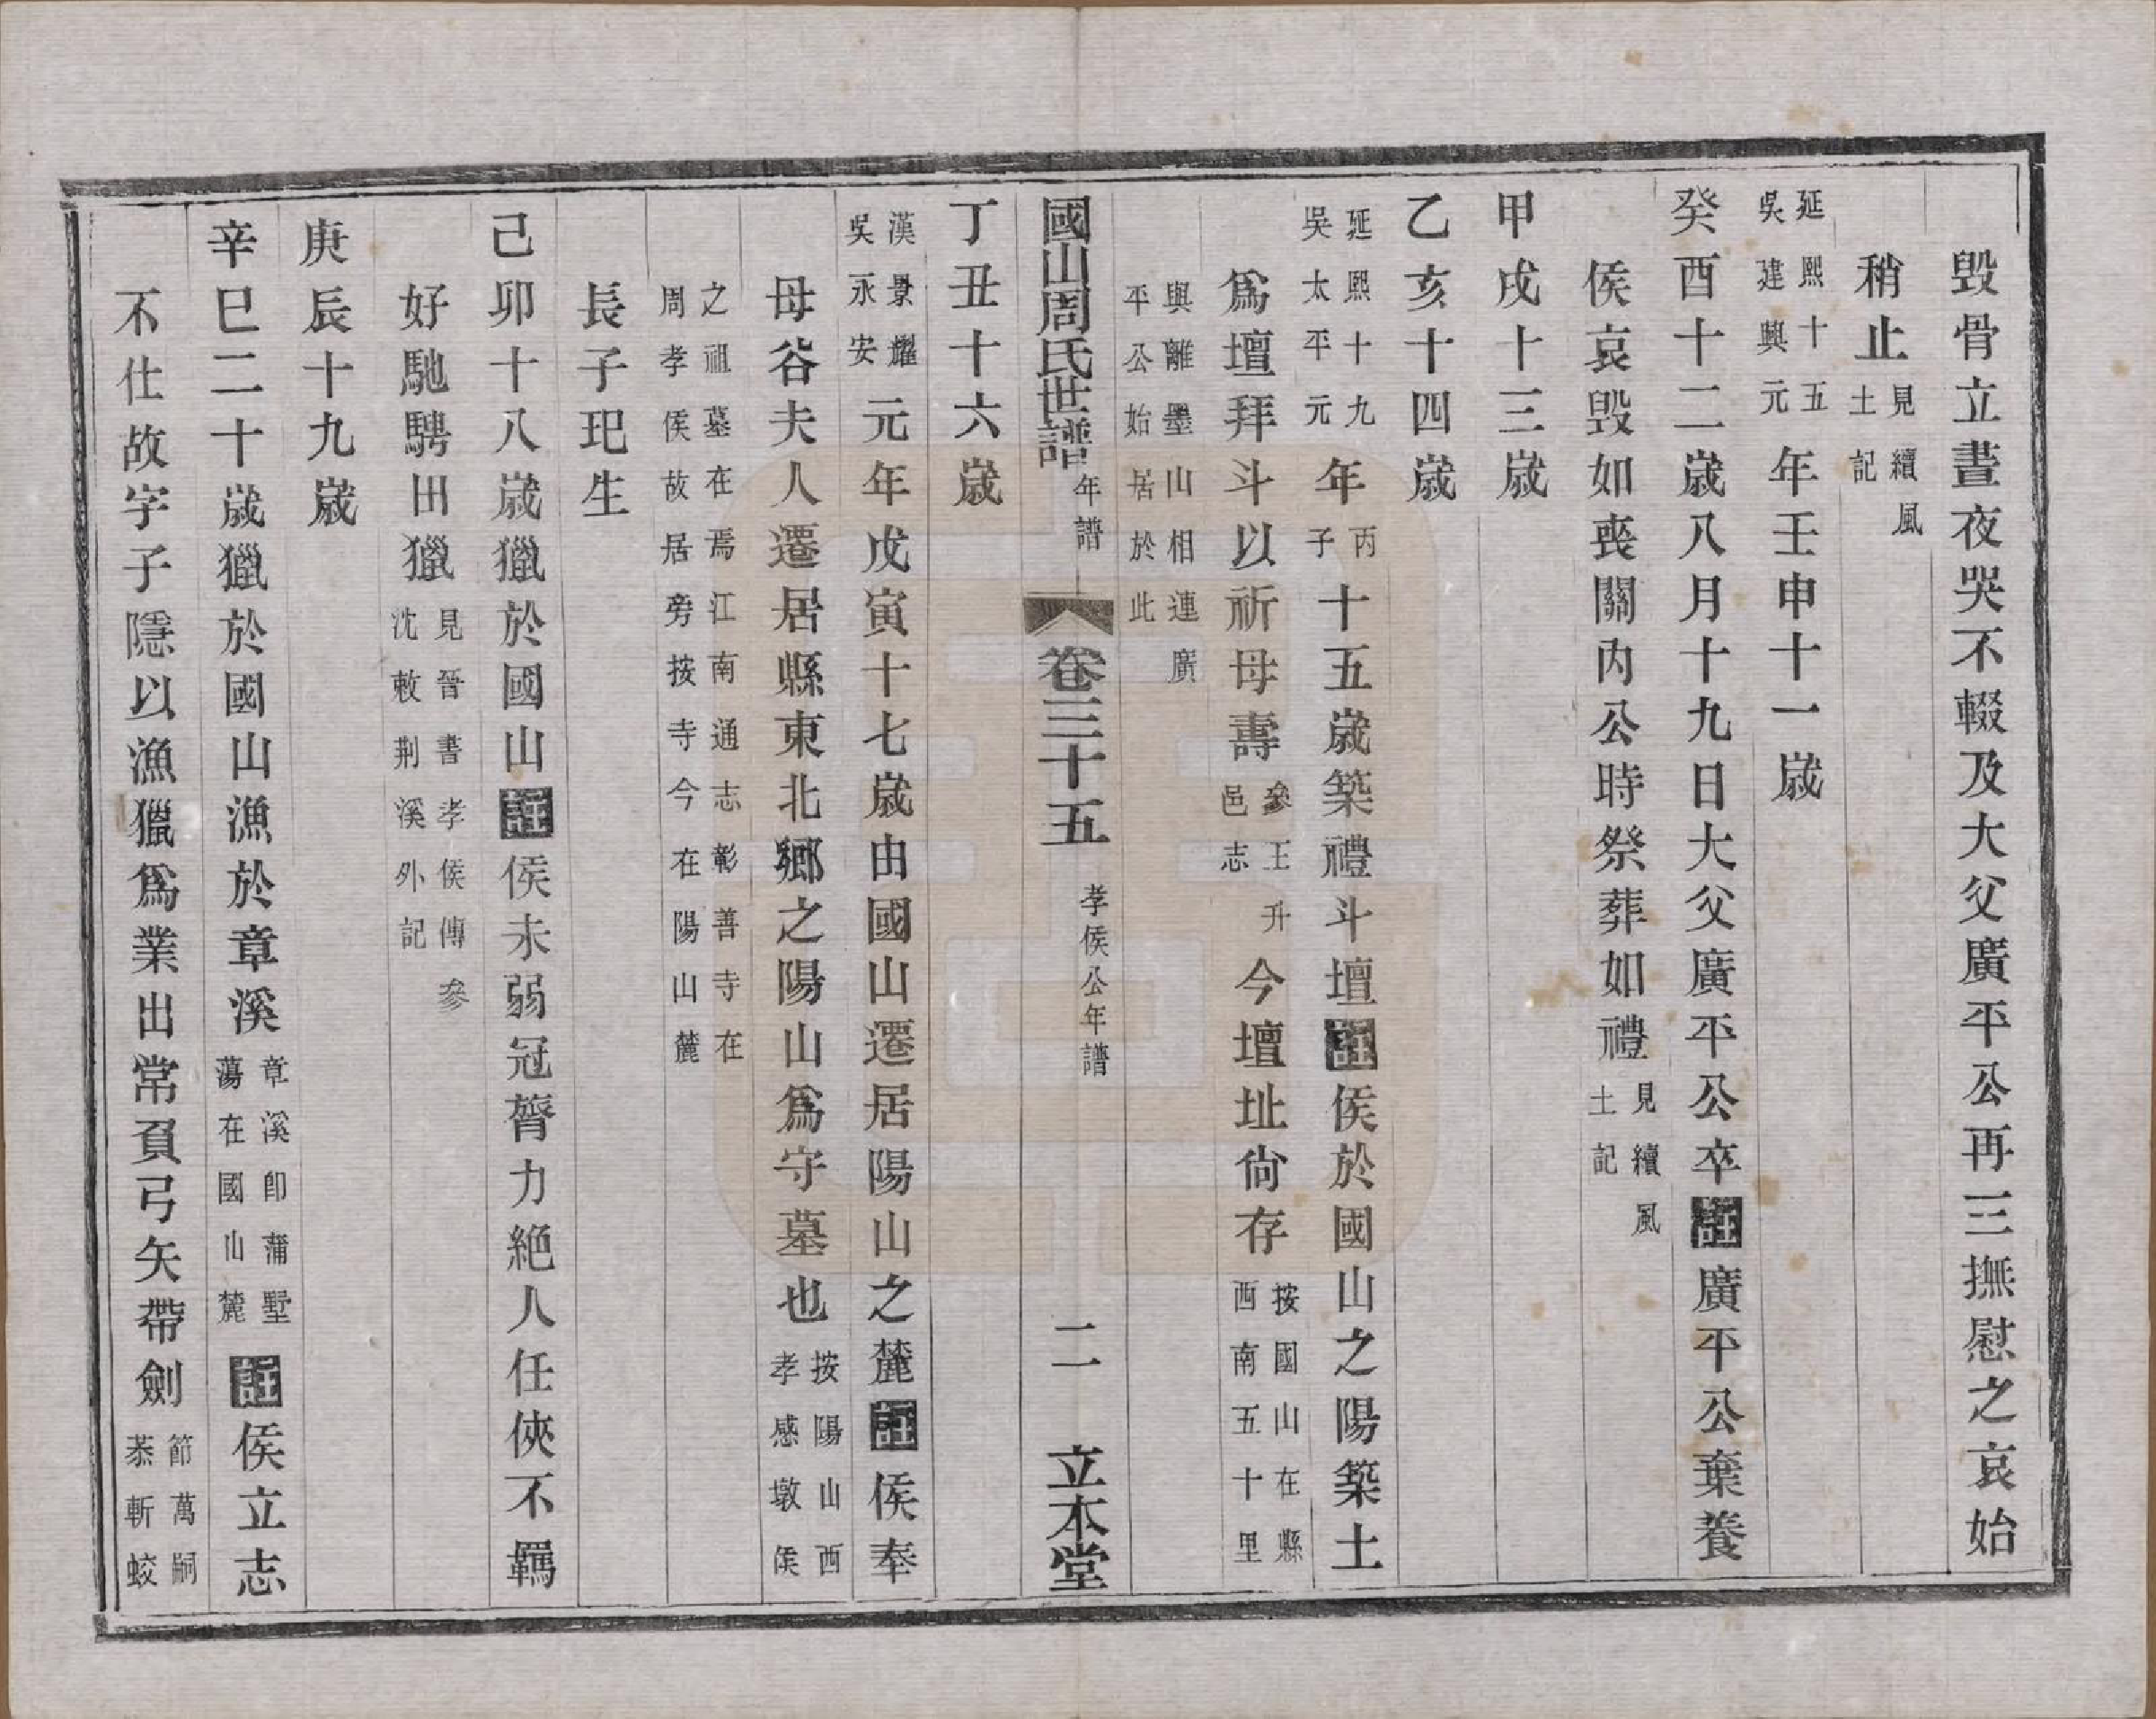 毀骨立晝夜哭不輟及大父廣平公再三撫慰之哀始
稍止見續風土記
延熙十五吳建興元年壬申十一歲
癸酉十二歲八月十九日大父廣平公卒註廣平公棄養
侯哀毀如喪關內公時祭葬如禮見續風土記
甲戌十三歲
乙亥十四歲
延熙十九吳太平元年丙子十五歲築禮斗壇註侯於國山之陽築土
爲壇拜斗以祈母壽參王升邑志今壇址尚存按國山在縣西南五十里
與離墨山相連廣平公始居於此
國山周氏世譜年譜 卷三十五 孝侯公年譜 二 立本堂
丁丑十六歲
漢景耀吳永安元年戊寅十七歲由國山遷居陽山之麓註侯奉
母谷夫人遷居縣東北鄉之陽山爲守墓也按陽山西孝感墩侯
之祖墓在焉江南通志彰善寺在周孝侯故居旁按寺今在陽山麓
長子玘生
己卯十八歲獵於國山註侯未弱冠膂力絕人任俠不羈
好馳騁田獵見晉書孝侯傳參沈敕荆溪外記
庚辰十九歲
辛巳二十歲獵於國山漁於章溪章溪卽蒲墅蕩在國山麓註侯立志
不仕故字子隱以漁獵爲業出常負弓矢帶劍節萬嗣菾斬蛟